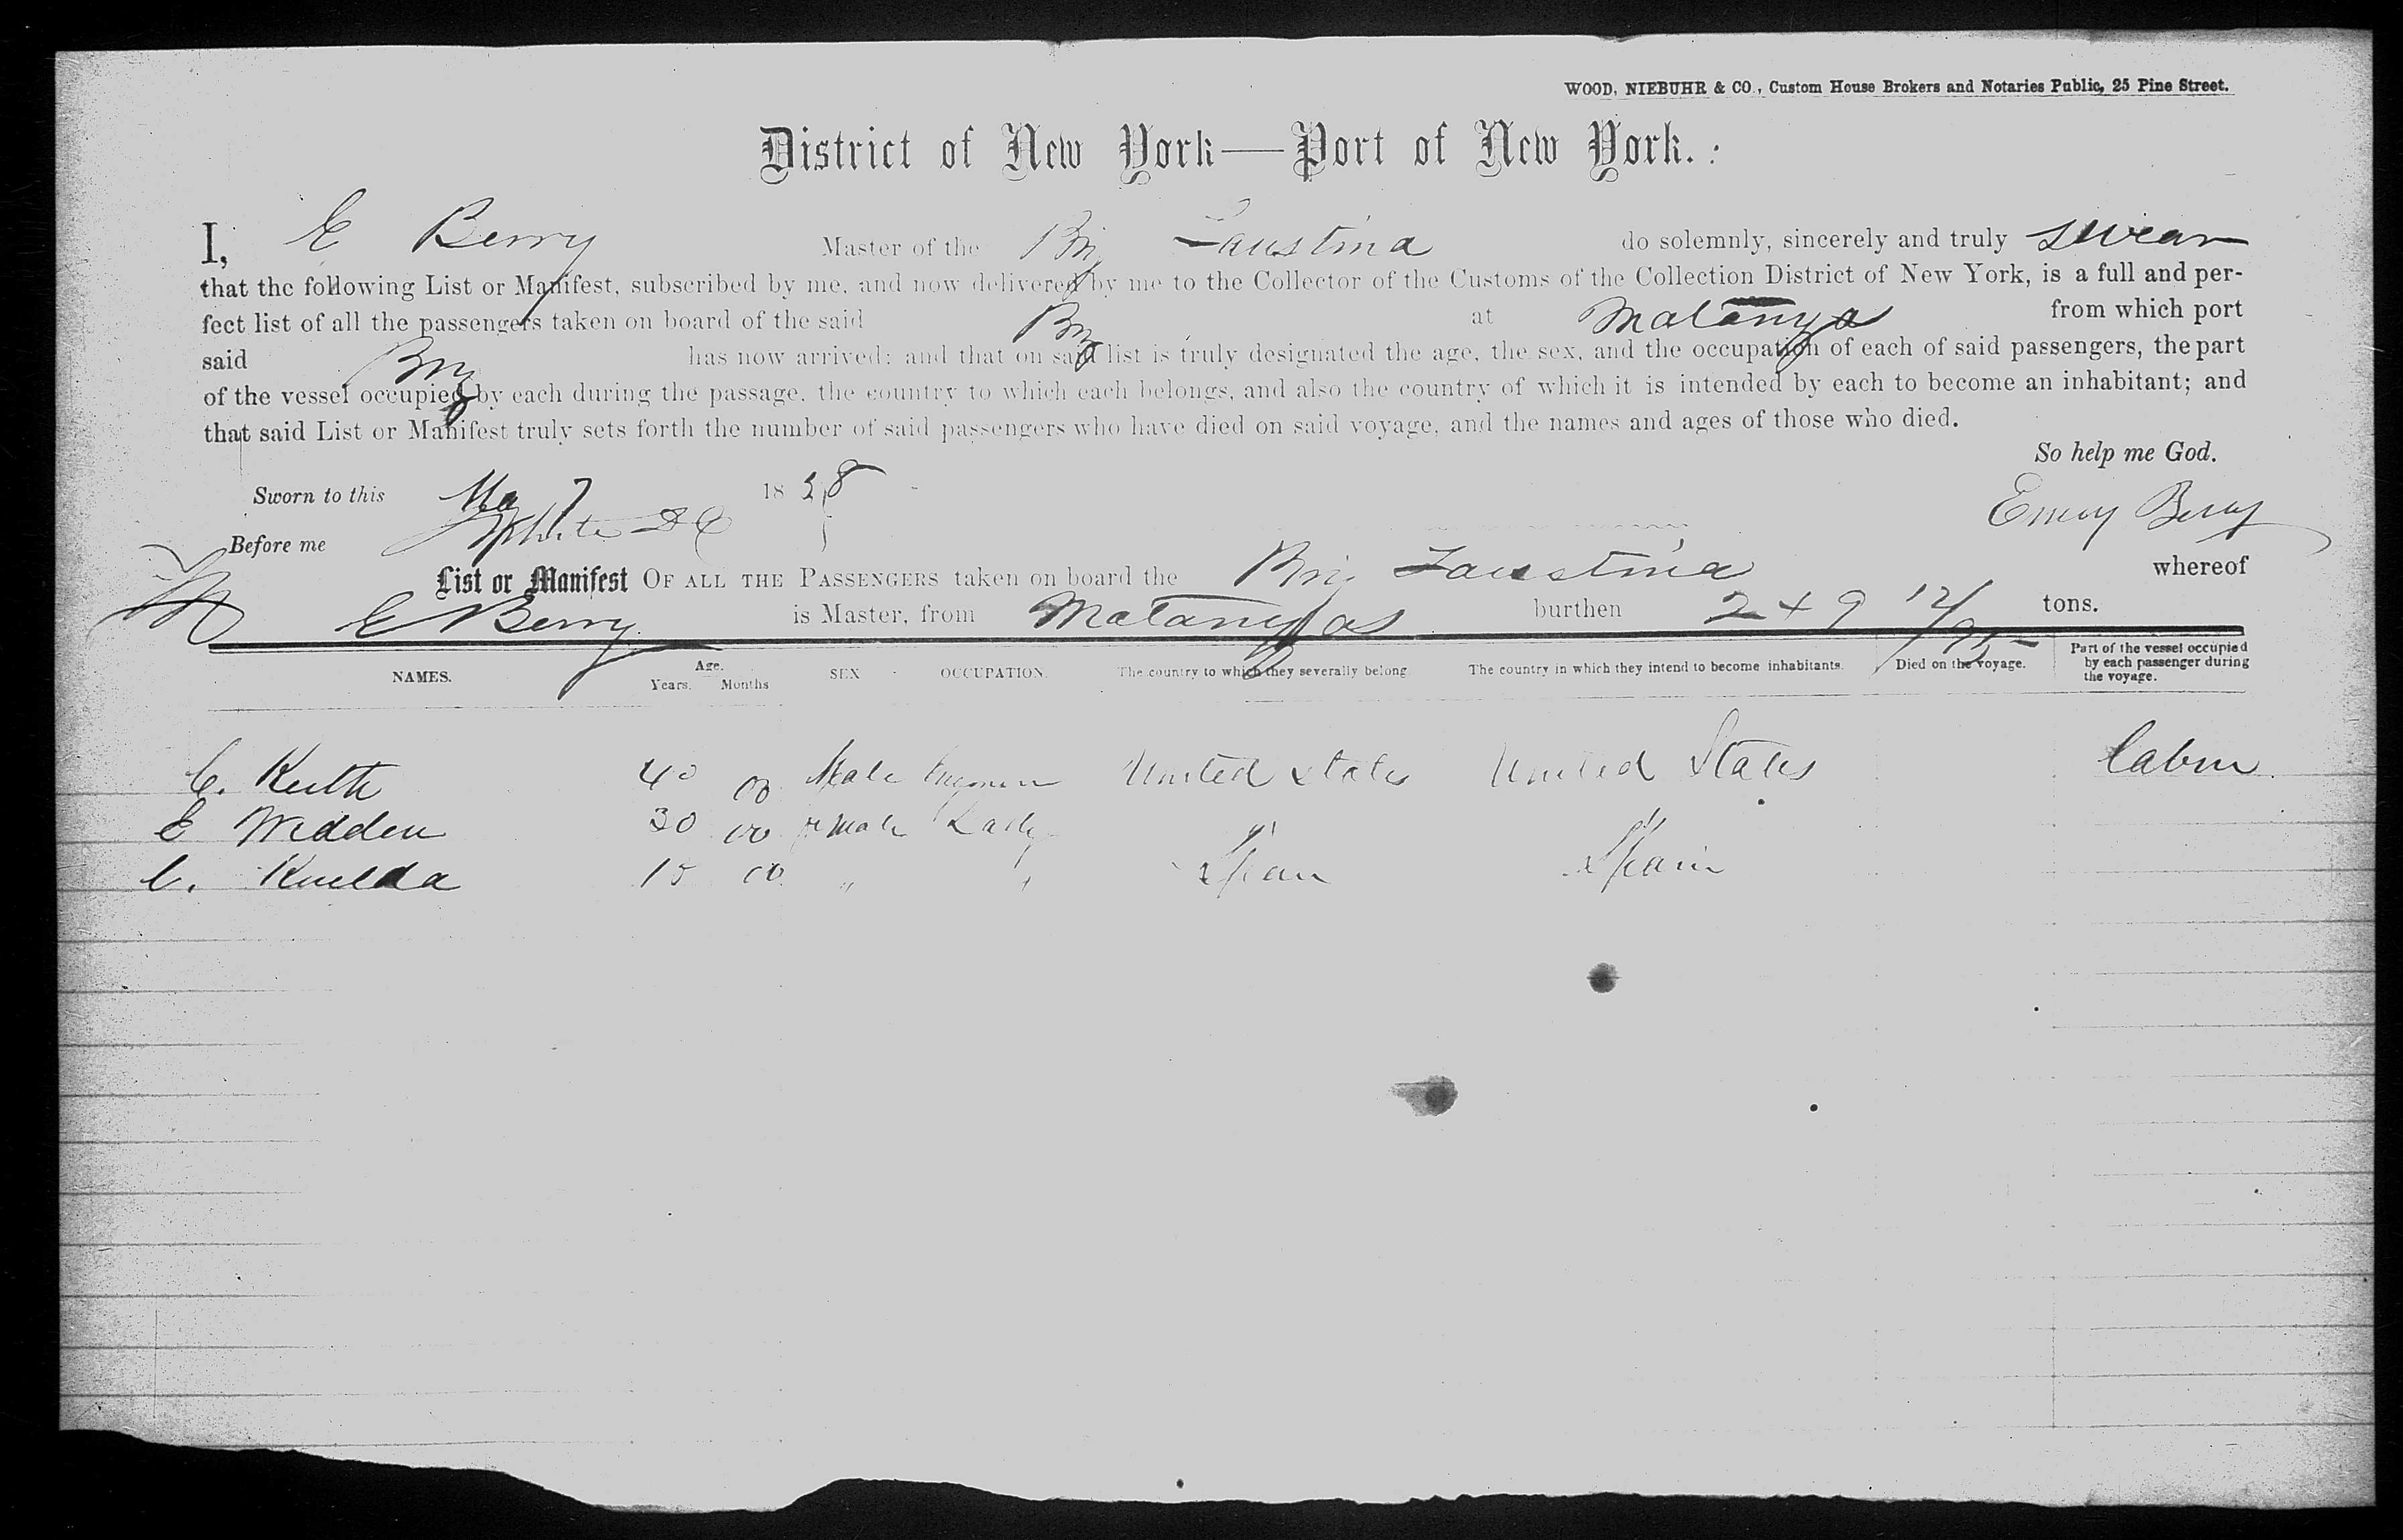 WOOD, NIEBUHR & CO., Custom House Brokers and Notaries Public, 25 Pine Street.
District of New York—Port of New York.
I, E Berry Master of the Brig Faustina do solemnly, sincerely and truly swear
that the following List or Manifest, subscribed by me, and now delivered by me to the Collector of the Customs of the Collection District of New York, is a full and per-
fect list of all the passengers taken on board of the said Brig at Matanzas from which port
said Brig has now arrived; and that on said list is truly designated the age, the sex, and the occupation of each of said passengers, the part
of the vessel occupied by each during the passage, the country to which each belongs, and also the country of which it is intended by each to become an inhabitant; and
that said List or Manifest truly sets forth the number of said passengers who have died on said voyage, and the names and ages of those who died.
So help me God.
Sworn to this Ma 7 1858
Before me White DC
Emery Berry
List or Manifest OF ALL THE PASSENGERS taken on board the Brig Faustina whereof
E Berry is Master, from Matanzas burthen 249 12/95 tons.
NAMES. Age. Years. Months SEX OCCUPATION. The country to which they severally belong. The country in which they intend to become inhabitants. Died on the voyage. Part of the vessel occupied by each passenger during the voyage.
C. Keith 40 00 Male United States United States Cabin
E Wedden 30 00 Female Lady
C. 15 00 " " Spain Spain